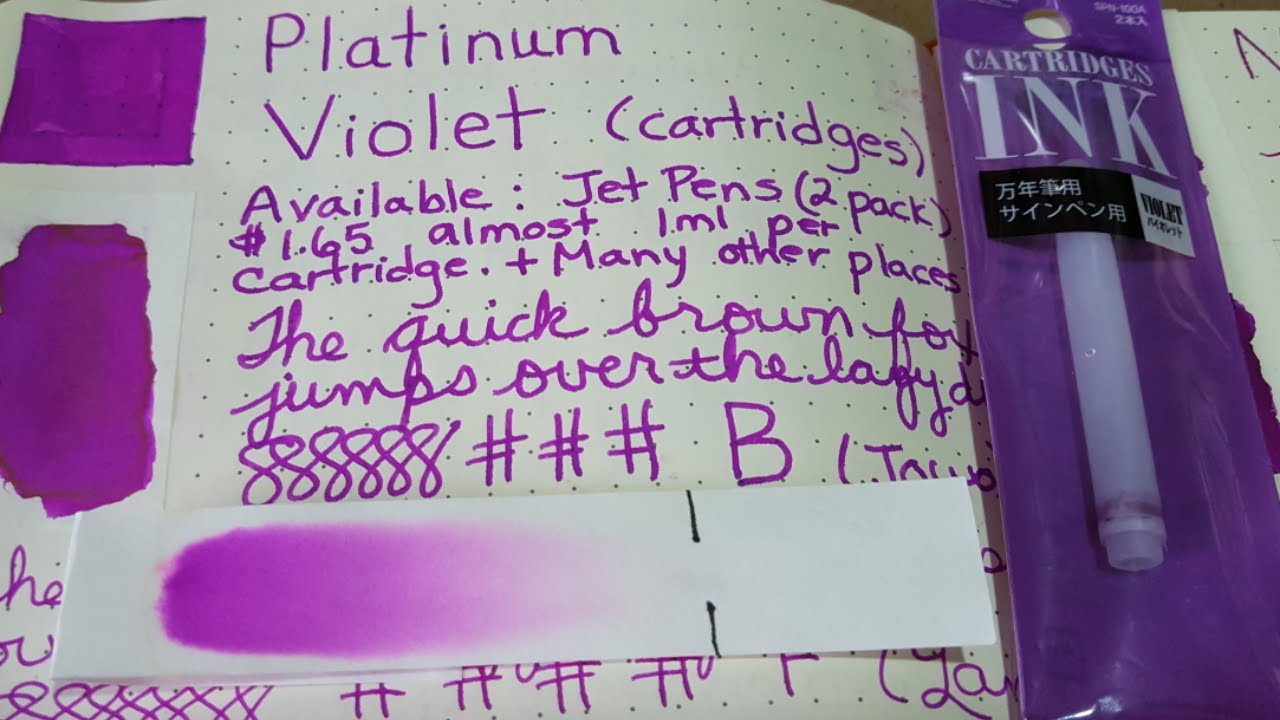 Platinum
Violet (cartridges)
Available : Jet Pens (2 pack)
$1.65 almost 1ml per
cartridge. + Many other places
The quick brown fox
jumps over the lazy
888888 # # # B
he
# # # #
SPN-100A
2本入
CARTRIDGES
INK
万年筆用
サインペン用
VIOLET
バイオレット